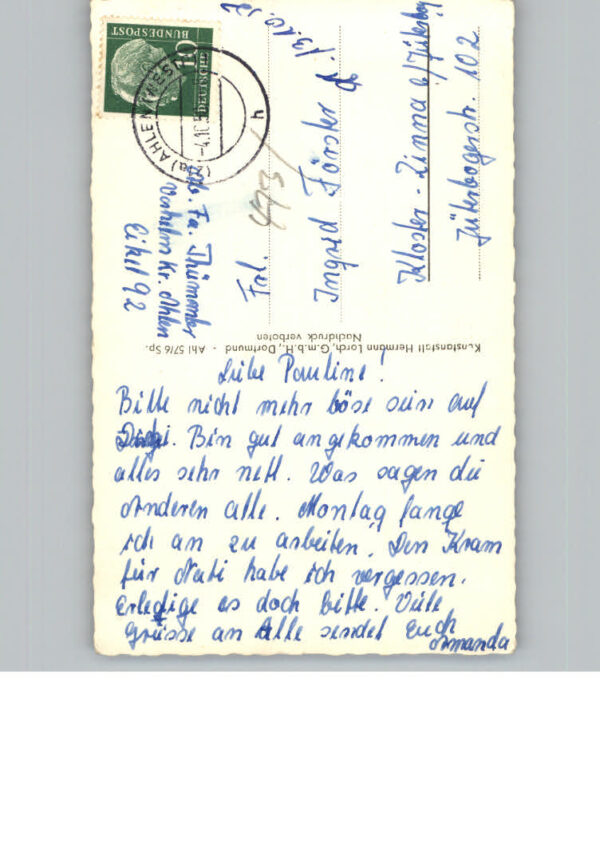 DEUTSCHE
BUNDESPOST
10
(21a) AHLEN (WESTF)
-4.10.5
4
473/
13.10.57
Frl.
Ingrid Förster
Kloster-Zinna b/Jüterbog
Jüterbogerstr. 102
Fa. Thürmonter
Vorhelm Kr. Ahlen
Eikel 92
Kunstanstalt Hermann Lorch, G.m.b.H., Dortmund - Ahl 57/6 Sp.
Nachdruck verboten
Liebe Pauline!
Bitte nicht mehr böse sein auf
Bin gut angekommen und
alles sehr nett. Was sagen die
Anderen alle. Montag fange
ich an zu arbeiten. Den Kram
für Nati habe ich vergessen.
Erledige es doch bitte. Viele
Grüsse an Alle sendet Euch
Armanda